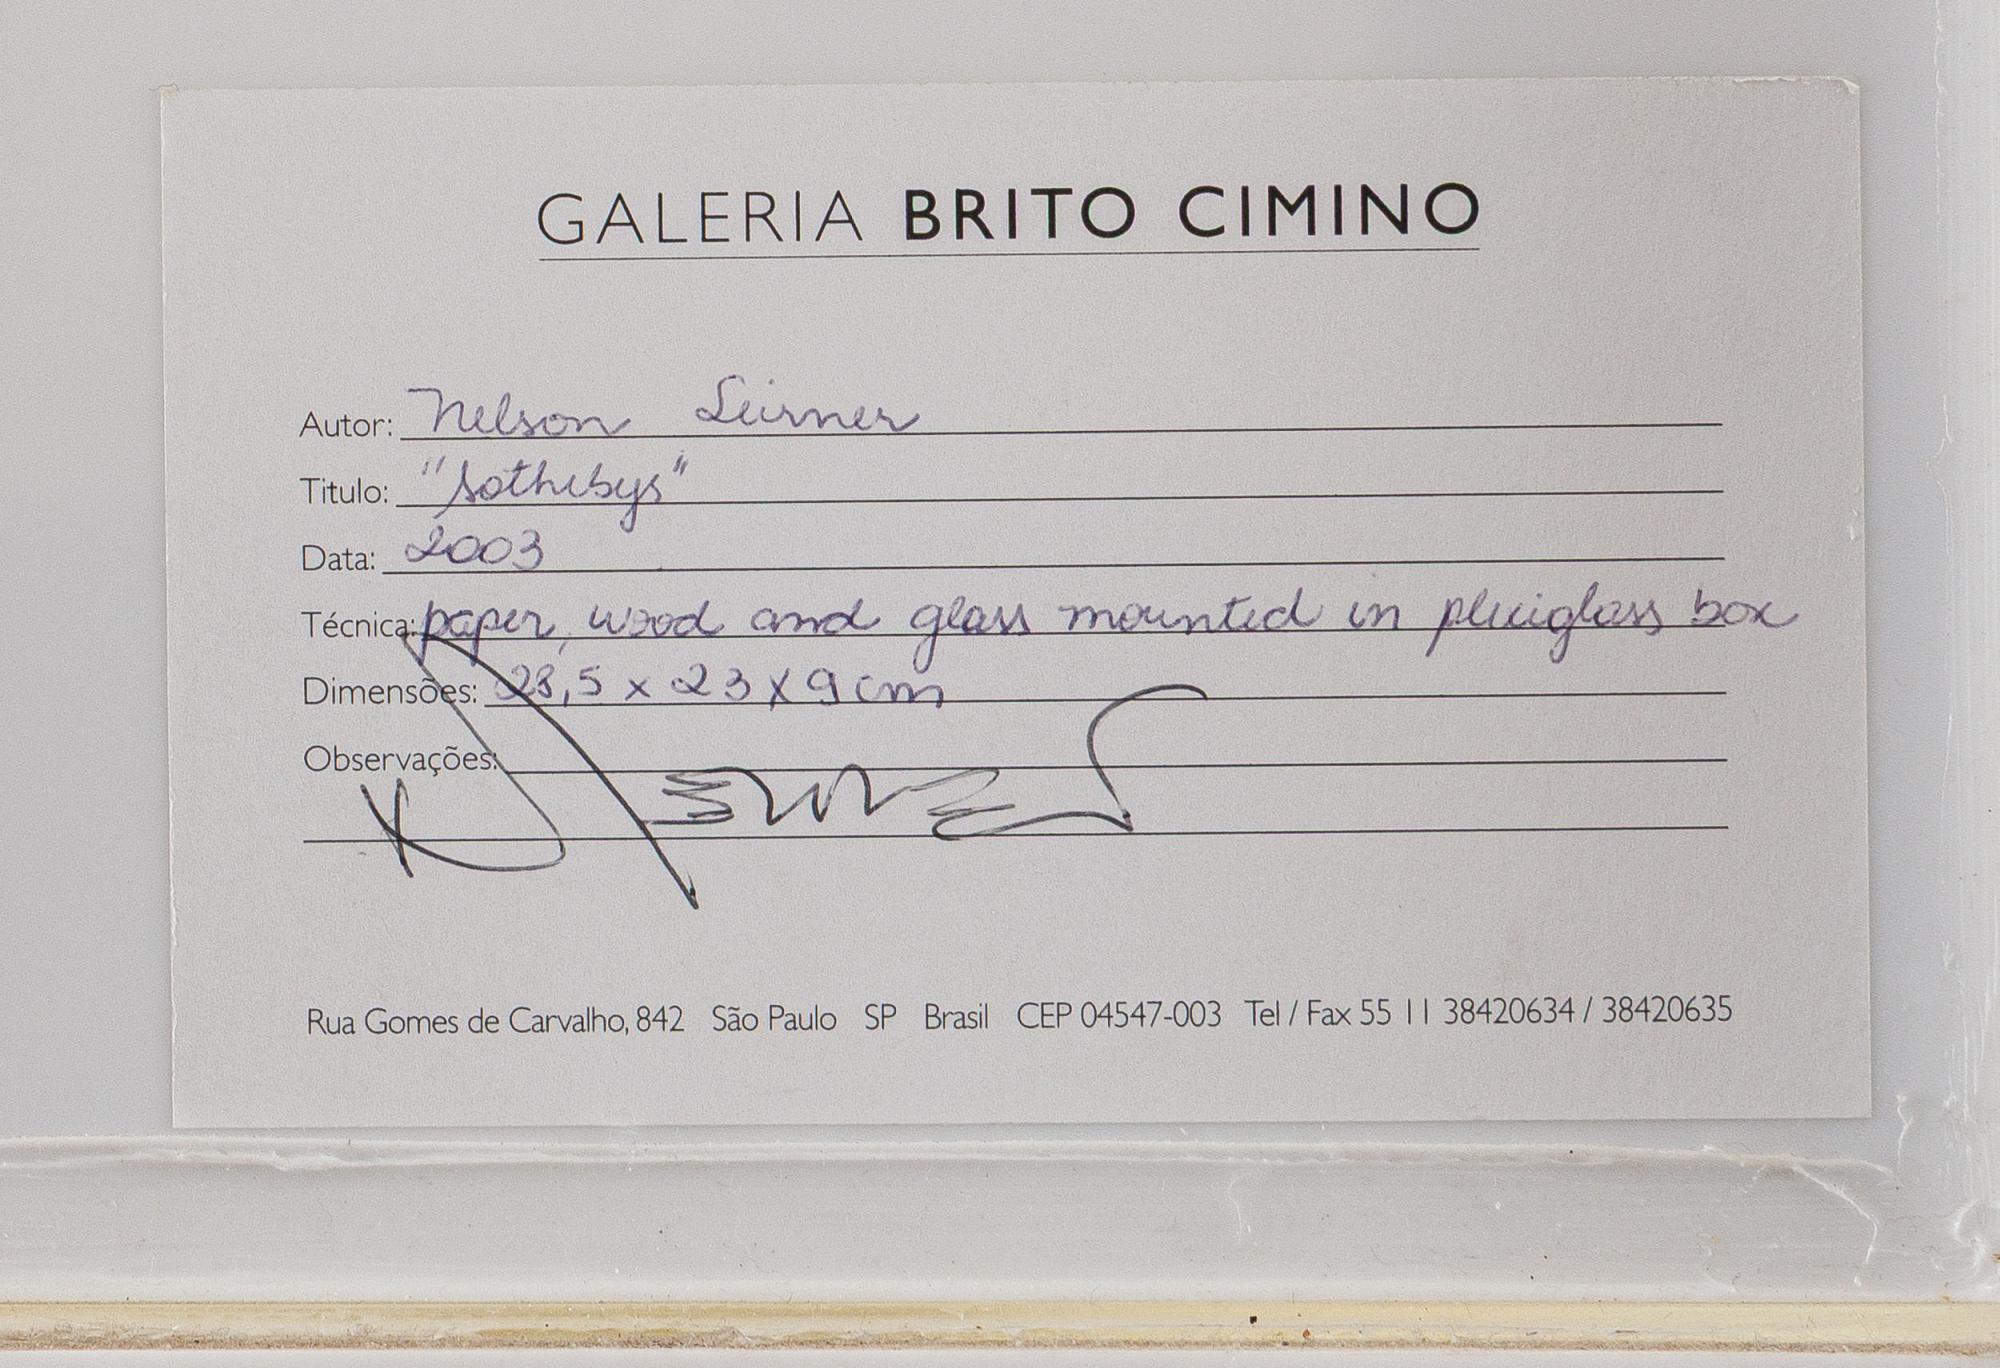 GALERIA BRITO CIMINO
Autor: Nelson Leirner
Titulo: "Sothebys"
Data: 2003
Técnica: paper, wood and glass mounted in plexiglass box
Dimensões: 28,5 x 23 x 9 cm
Observações:
Rua Gomes de Carvalho, 842 São Paulo SP Brasil CEP 04547-003 Tel / Fax 55 11 38420634 / 38420635